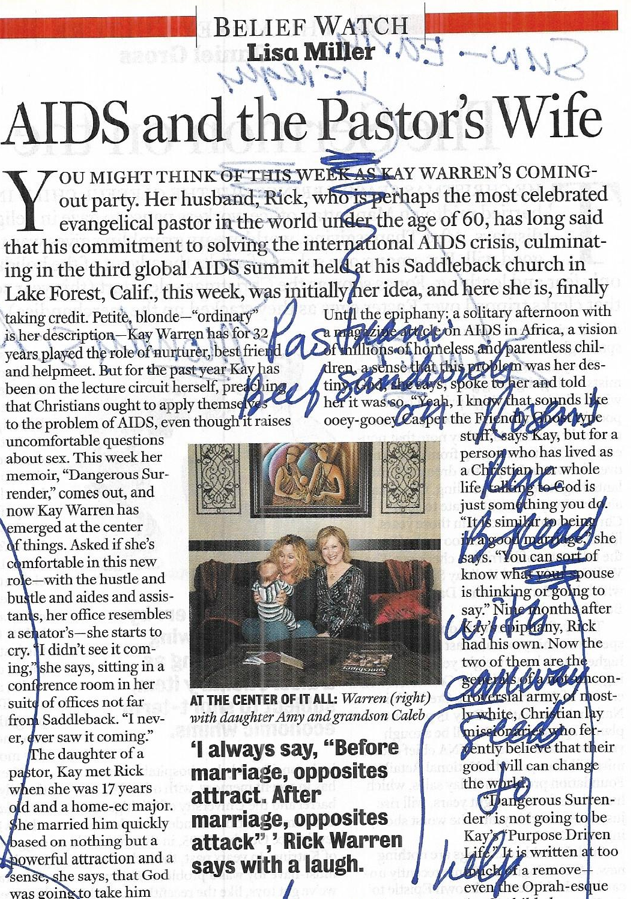 BELIEF WATCH
Lisa Miller
AIDS and the Pastor's Wife
YOU MIGHT THINK OF THIS WEEK AS KAY WARREN'S COMING-
out party. Her husband, Rick, who is perhaps the most celebrated
evangelical pastor in the world under the age of 60, has long said
that his commitment to solving the international AIDS crisis, culminat-
ing in the third global AIDS summit held at his Saddleback church in
Lake Forest, Calif., this week, was initially her idea, and here she is, finally
taking credit. Petite, blonde—"ordinary"
is her description—Kay Warren has for 32
years played the role of nurturer, best friend
and helpmeet. But for the past year Kay has
been on the lecture circuit herself, preaching
that Christians ought to apply themselves
to the problem of AIDS, even though it raises
uncomfortable questions
about sex. This week her
memoir, "Dangerous Sur-
render," comes out, and
now Kay Warren has
emerged at the center
of things. Asked if she's
comfortable in this new
role—with the hustle and
bustle and aides and assis-
tants, her office resembles
a senator's—she starts to
cry. "I didn't see it com-
ing," she says, sitting in a
conference room in her
suite of offices not far
from Saddleback. "I nev-
er, ever saw it coming."
The daughter of a
pastor, Kay met Rick
when she was 17 years
old and a home-ec major.
She married him quickly
based on nothing but a
powerful attraction and a
sense, she says, that God
was going to take him
AT THE CENTER OF IT ALL: Warren (right)
with daughter Amy and grandson Caleb
'I always say, "Before
marriage, opposites
attract. After
marriage, opposites
attack",' Rick Warren
says with a laugh.
Until the epiphany: a solitary afternoon with
a magazine article on AIDS in Africa, a vision
of millions of homeless and parentless chil-
dren, a sense that this problem was her des-
tiny. God, she says, spoke to her and told
her it was so. "Yeah, I know that sounds like
ooey-gooey Casper the Friendly Ghost-type
stuff," says Kay, but for a
person who has lived as
a Christian her whole
life, talking to God is
just something you do.
"It is similar to being
in a good marriage," she
says. "You can sort of
know what your spouse
is thinking or going to
say." Nine months after
Kay's epiphany, Rick
had his own. Now the
two of them are the
generals of a not uncon-
troversial army of most-
ly white, Christian lay
missionaries who fer-
vently believe that their
good will can change
the world.
"Dangerous Surren-
der" is not going to be
Kay's "Purpose Driven
Life." It is written at too
much of a remove—
even the Oprah-esque
Pastrami
beef sandwich
on
Rye
Bread
with
to
help